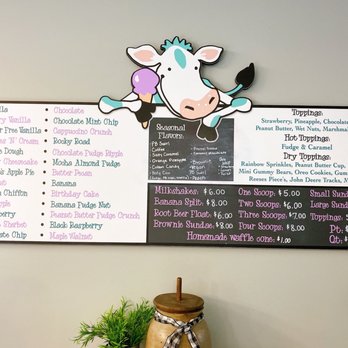 Vanilla
Chocolate
Chocolate Mint Chip
Free Vanilla
Cappuccino Crunch
'N' Cream
Rocky Road
Dough
Chocolate Fudge Ripple
Cheesecake
Mocha Almond Fudge
Apple Pie
Butter Pecan
Banana
Chiffon
Birthday Cake
Banana Fudge Nut
Peanut Butter Fudge Crunch
Sherbet
Black Raspberry
Chip
Maple Walnut
Seasonal
Flavors:
Coffee
Orange Pineapple
Cotton Candy
Toppings:
Strawberry, Pineapple, Chocolate
Peanut Butter, Wet Nuts, Marshmal
Hot Toppings:
Fudge & Caramel
Dry Toppings:
Rainbow Sprinkles, Peanut Butter Cup,
Mini Gummy Bears, Oreo Cookies, Gum
Reeses Piece's, John Deere Tracks, M
Milkshakes: $6.00
Banana Split: $8.00
Root Beer Float: $6.00
Brownie Sundae: $8.00
One Scoop: $5.00
Two Scoops: $6.00
Three Scoops: $7.00
Four Scoops: $8.00
Homemade waffle cone: $1.00
Small Sund
Large Sund
Toppings:
Pt:
Qt: